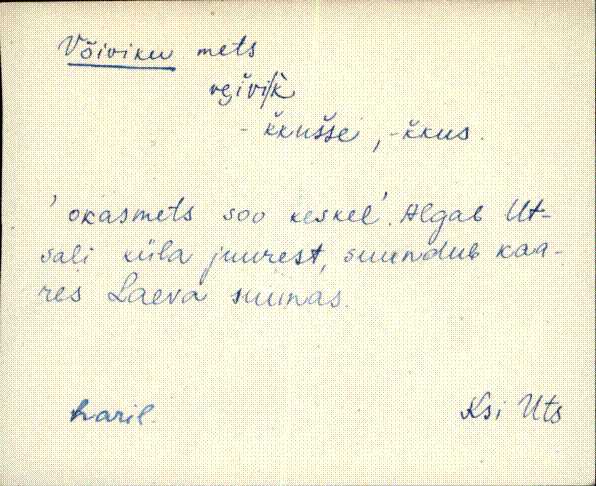 Võiviku mets
vẹivi/k̆
- k̆kušse, -k̆kus.
'okasmets soo keskel'. Algab Ut-
sali küla juurest, suundub kaa-
res Laeva suunas.
haril.
Ksi Uts